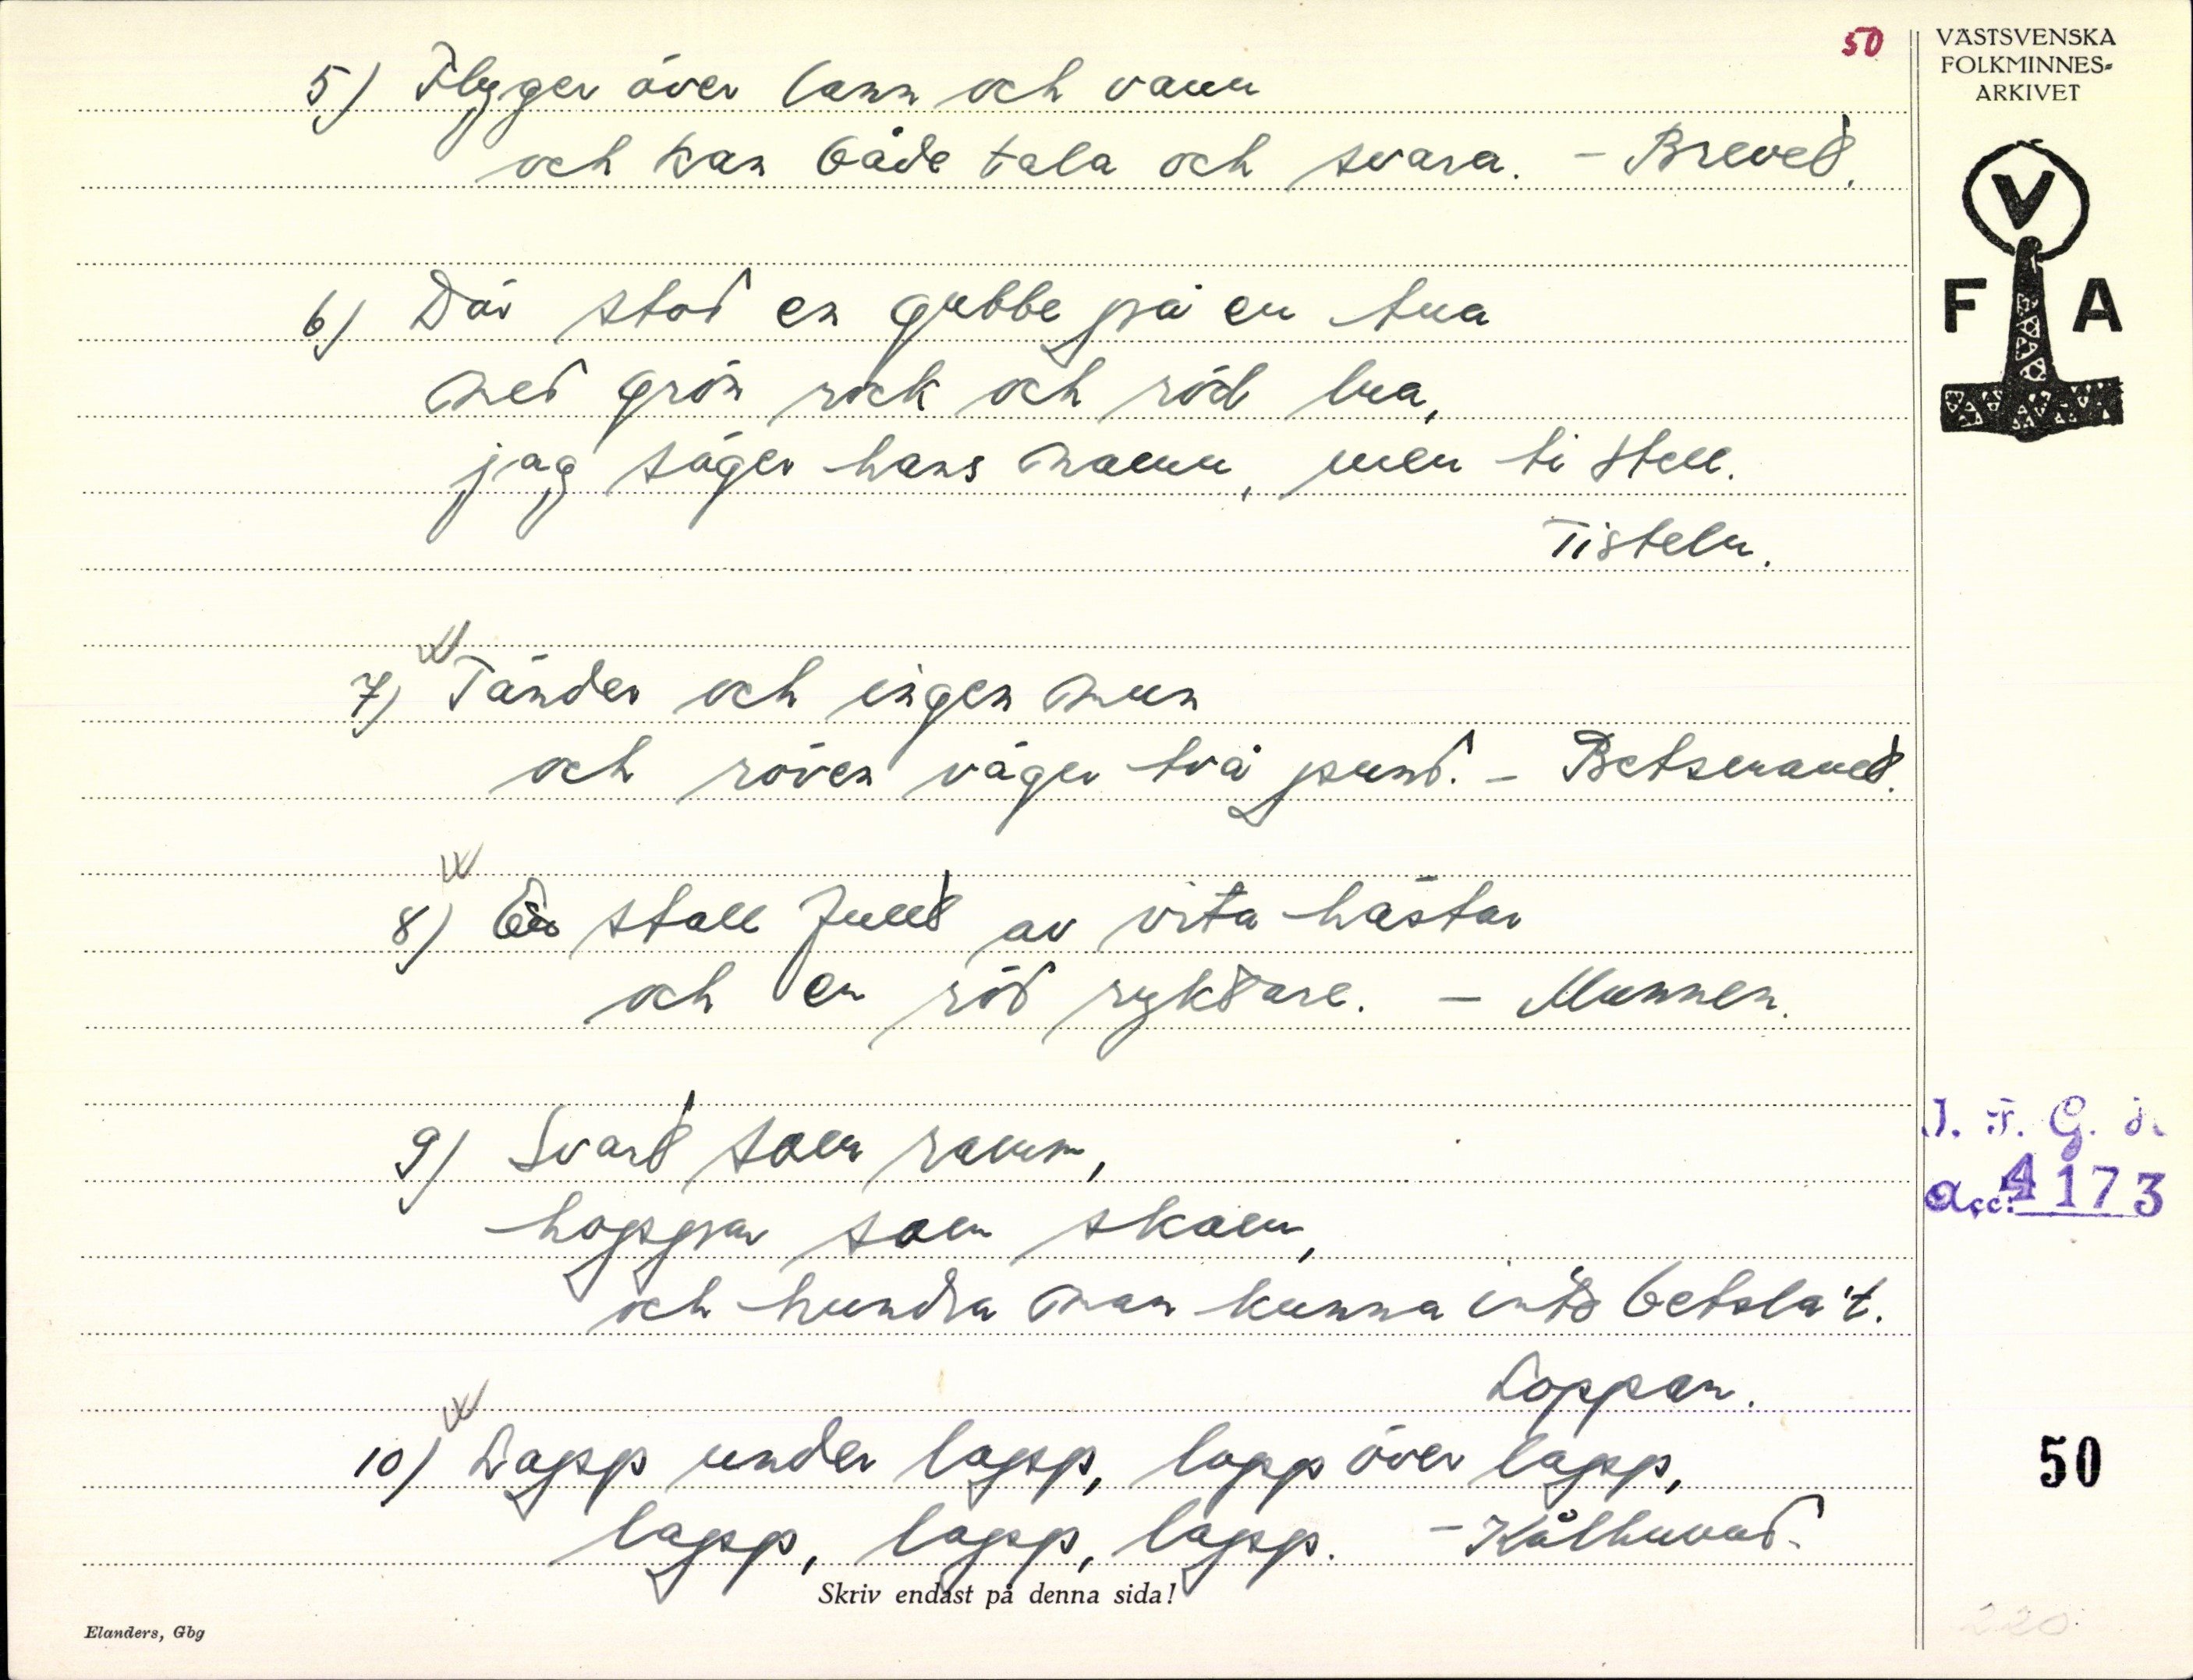 50
VÄSTSVENSKA
FOLKMINNES-
ARKIVET
V
F A
5) Flyger över lann och vann
och kan både tala och svara. - Brevet.
6) Där stod en gubbe på en tua
med grön rock och röd lua,
jag säger hans namn, men ti still.
Tisteln.
7) Tänder och ingen mun
och röven väger två pund. - Betsmanet.
8) Ett stall fullt av vita hästar
och en röd ryktare. - Munnen.
9) Svart som ramm,
hoppar som skam,
och hundra man kunna inte betsla't.
Loppan.
10) Lapp under lapp, lapp över lapp,
lapp, lapp, lapp. - Kålhuvud.
I. F. G. H.
Acc. 4173
50
Skriv endast på denna sida!
Elanders, Gbg
220